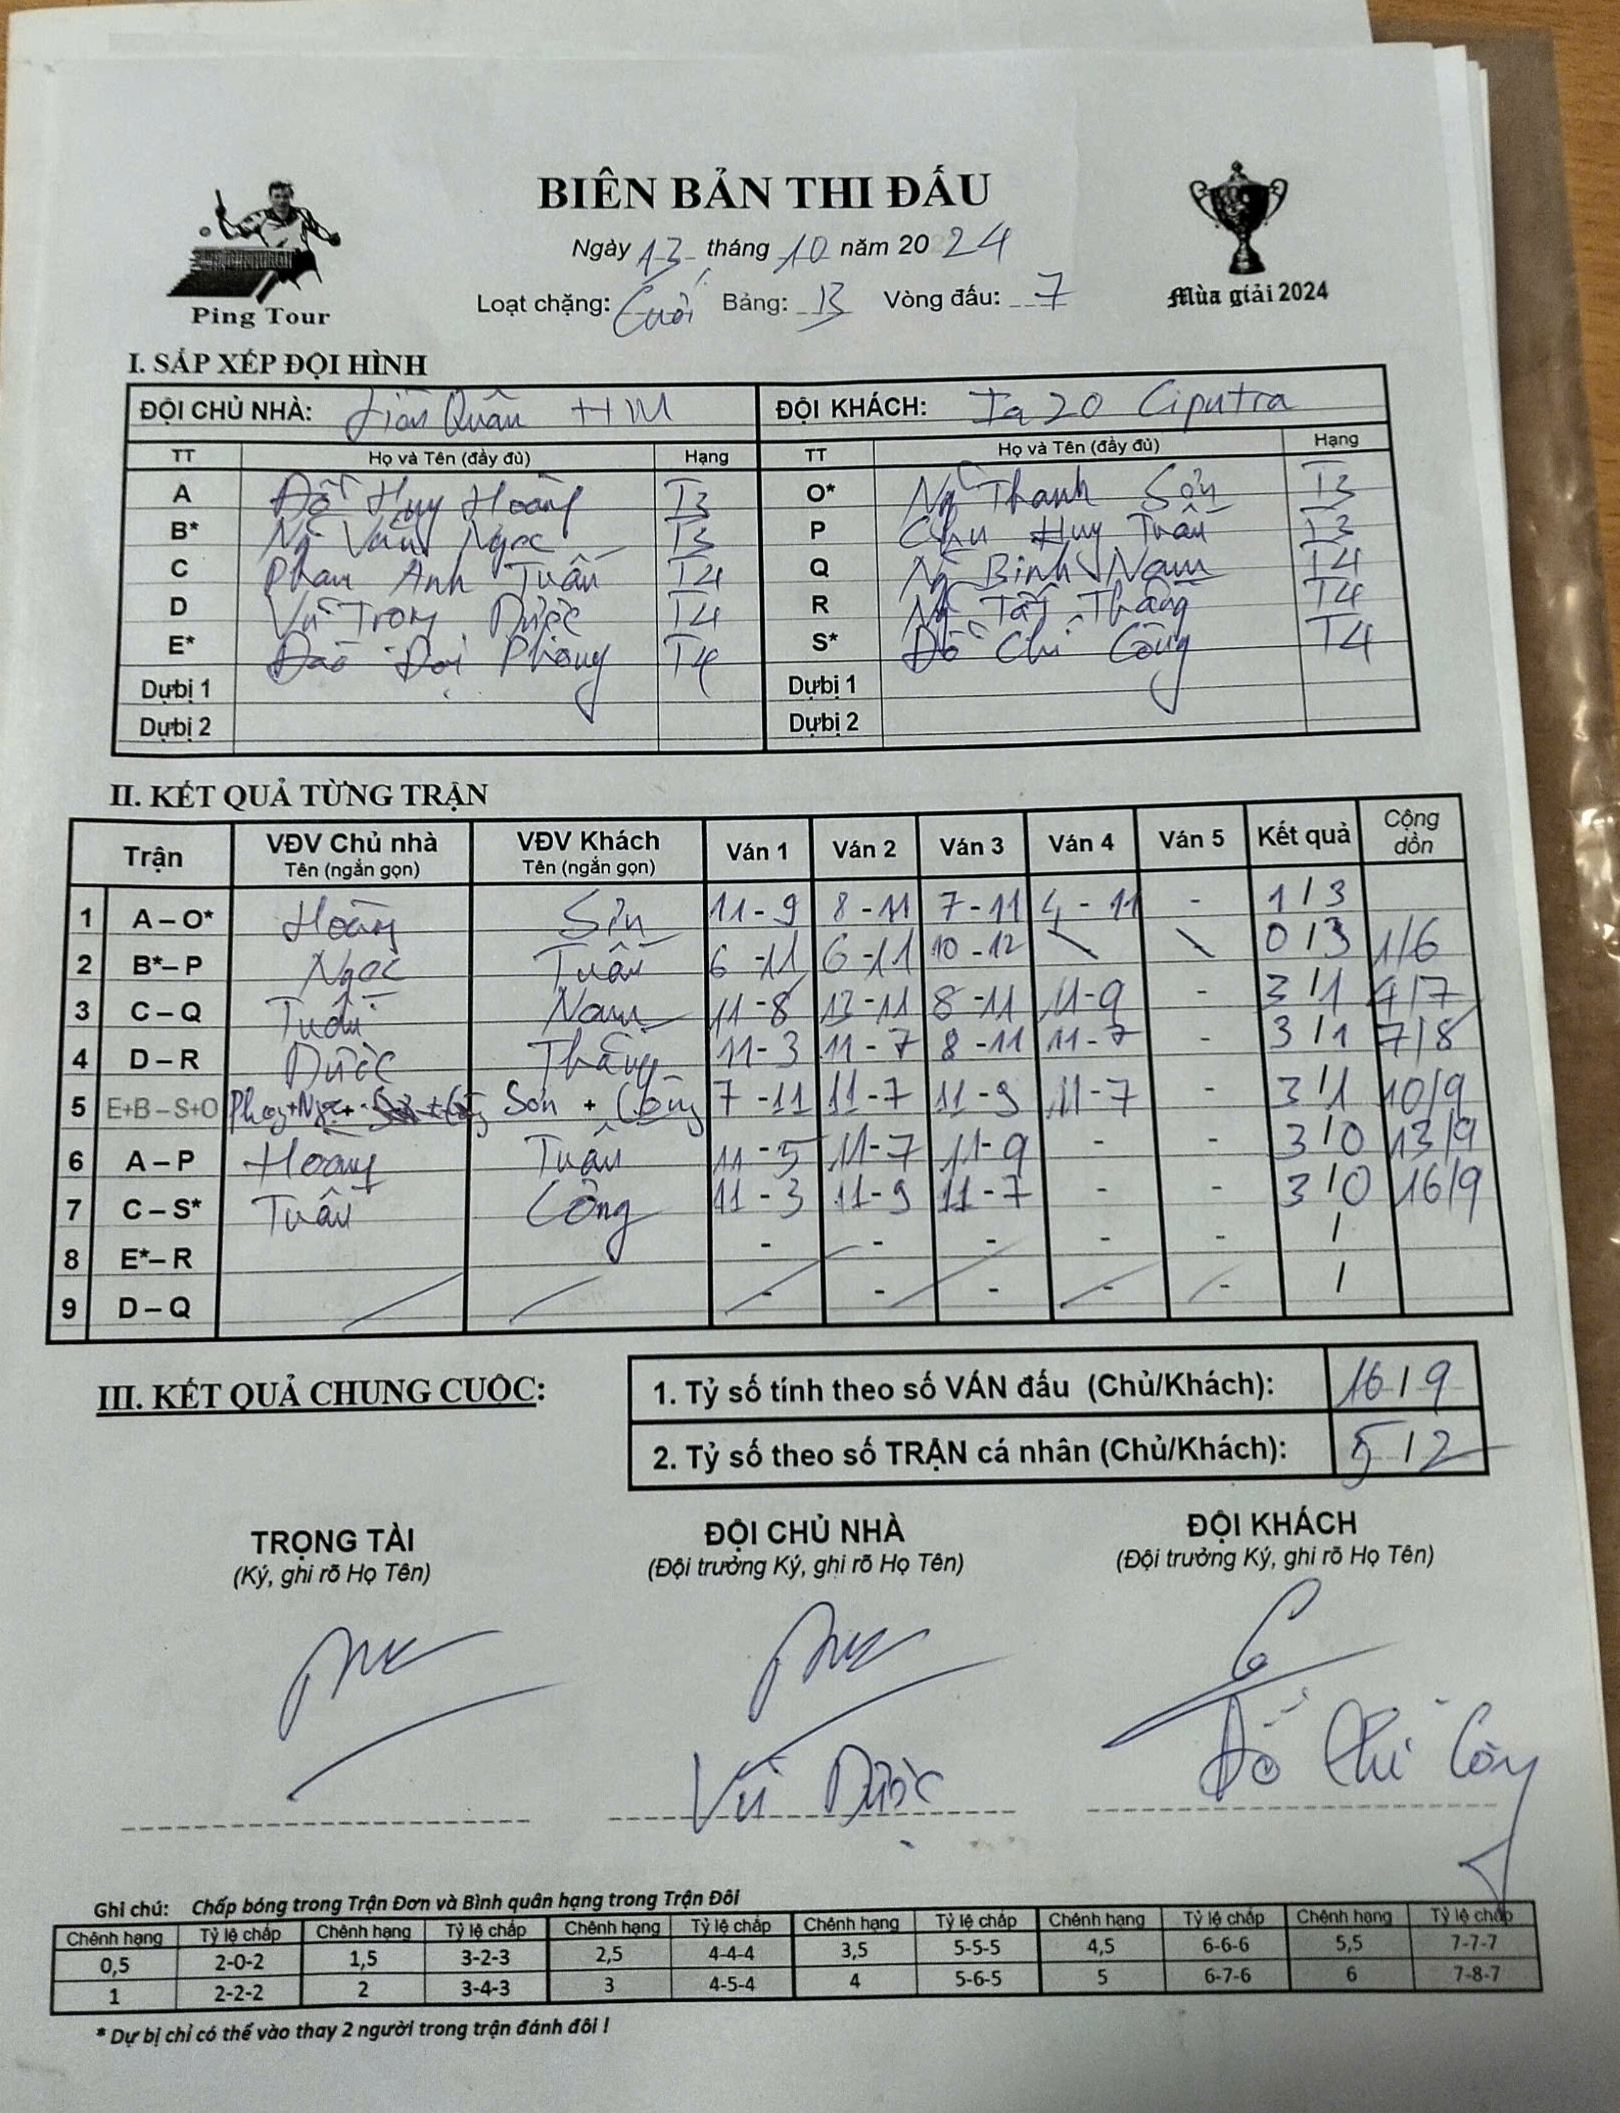 BIÊN BẢN THI ĐẤU
Ngày 13 tháng 10 năm 20 24
Loạt chặng: Cuối Bảng: B Vòng đấu: 7
Ping Tour
Mùa giải 2024
I. SẮP XẾP ĐỘI HÌNH
ĐỘI CHỦ NHÀ: Quân HM ĐỘI KHÁCH: Ta 20 Ciputra
TT Họ và Tên (đầy đủ) Hạng TT Họ và Tên (đầy đủ) Hạng
A Đỗ Huy Hoàng T3 O* Ng Thanh Sơn T3
B* Ng Văn Ngọc T3 P Chu Huy Tuấn T3
C Phan Anh Tuấn T4 Q Ng Bình Nam T4
D Vũ Trọng Được T4 R Ng Tất Thắng T4
E* Đào Đại Phong T4 S* Đỗ Chí Công T4
Dự bị 1 Dự bị 1
Dự bị 2 Dự bị 2
II. KẾT QUẢ TỪNG TRẬN
Trận VĐV Chủ nhà Tên (ngắn gọn) VĐV Khách Tên (ngắn gọn) Ván 1 Ván 2 Ván 3 Ván 4 Ván 5 Kết quả Cộng dồn
1 A – O* Hoàng Sơn 11 - 9 8 - 11 7 - 11 4 - 11 - 1 / 3
2 B* – P Ngọc Tuấn 6 - 11 6 - 11 10 - 12 0 / 3 1/6
3 C – Q Tuấn Nam 11 - 8 13 - 11 8 - 11 11 - 9 - 3 / 1 4/7
4 D – R Được Thắng 11 - 3 11 - 7 8 - 11 11 - 7 - 3 / 1 7/8
5 E+B – S+O Phong+Ngọc Sơn + Công 7 - 11 11 - 7 11 - 9 11 - 7 - 3 / 1 10/9
6 A – P Hoàng Tuấn 11 - 5 11 - 7 11 - 9 - - 3 / 0 13/9
7 C – S* Tuấn Công 11 - 3 11 - 9 11 - 7 - - 3 / 0 16/9
8 E* – R - - - - - /
9 D – Q - - - - - /
III. KẾT QUẢ CHUNG CUỘC:
1. Tỷ số tính theo số VÁN đấu (Chủ/Khách): 16 / 9
2. Tỷ số theo số TRẬN cá nhân (Chủ/Khách): 5 / 2
TRỌNG TÀI ĐỘI CHỦ NHÀ ĐỘI KHÁCH
(Ký, ghi rõ Họ Tên) (Đội trưởng Ký, ghi rõ Họ Tên) (Đội trưởng Ký, ghi rõ Họ Tên)
Vũ Được Đỗ Chí Công
Ghi chú: Chấp bóng trong Trận Đơn và Bình quân hạng trong Trận Đôi
Chênh hạng Tỷ lệ chấp Chênh hạng Tỷ lệ chấp Chênh hạng Tỷ lệ chấp Chênh hạng Tỷ lệ chấp Chênh hạng Tỷ lệ chấp Chênh hạng Tỷ lệ chấp
0,5 2-0-2 1,5 3-2-3 2,5 4-4-4 3,5 5-5-5 4,5 6-6-6 5,5 7-7-7
1 2-2-2 2 3-4-3 3 4-5-4 4 5-6-5 5 6-7-6 6 7-8-7
* Dự bị chỉ có thể vào thay 2 người trong trận đánh đôi !